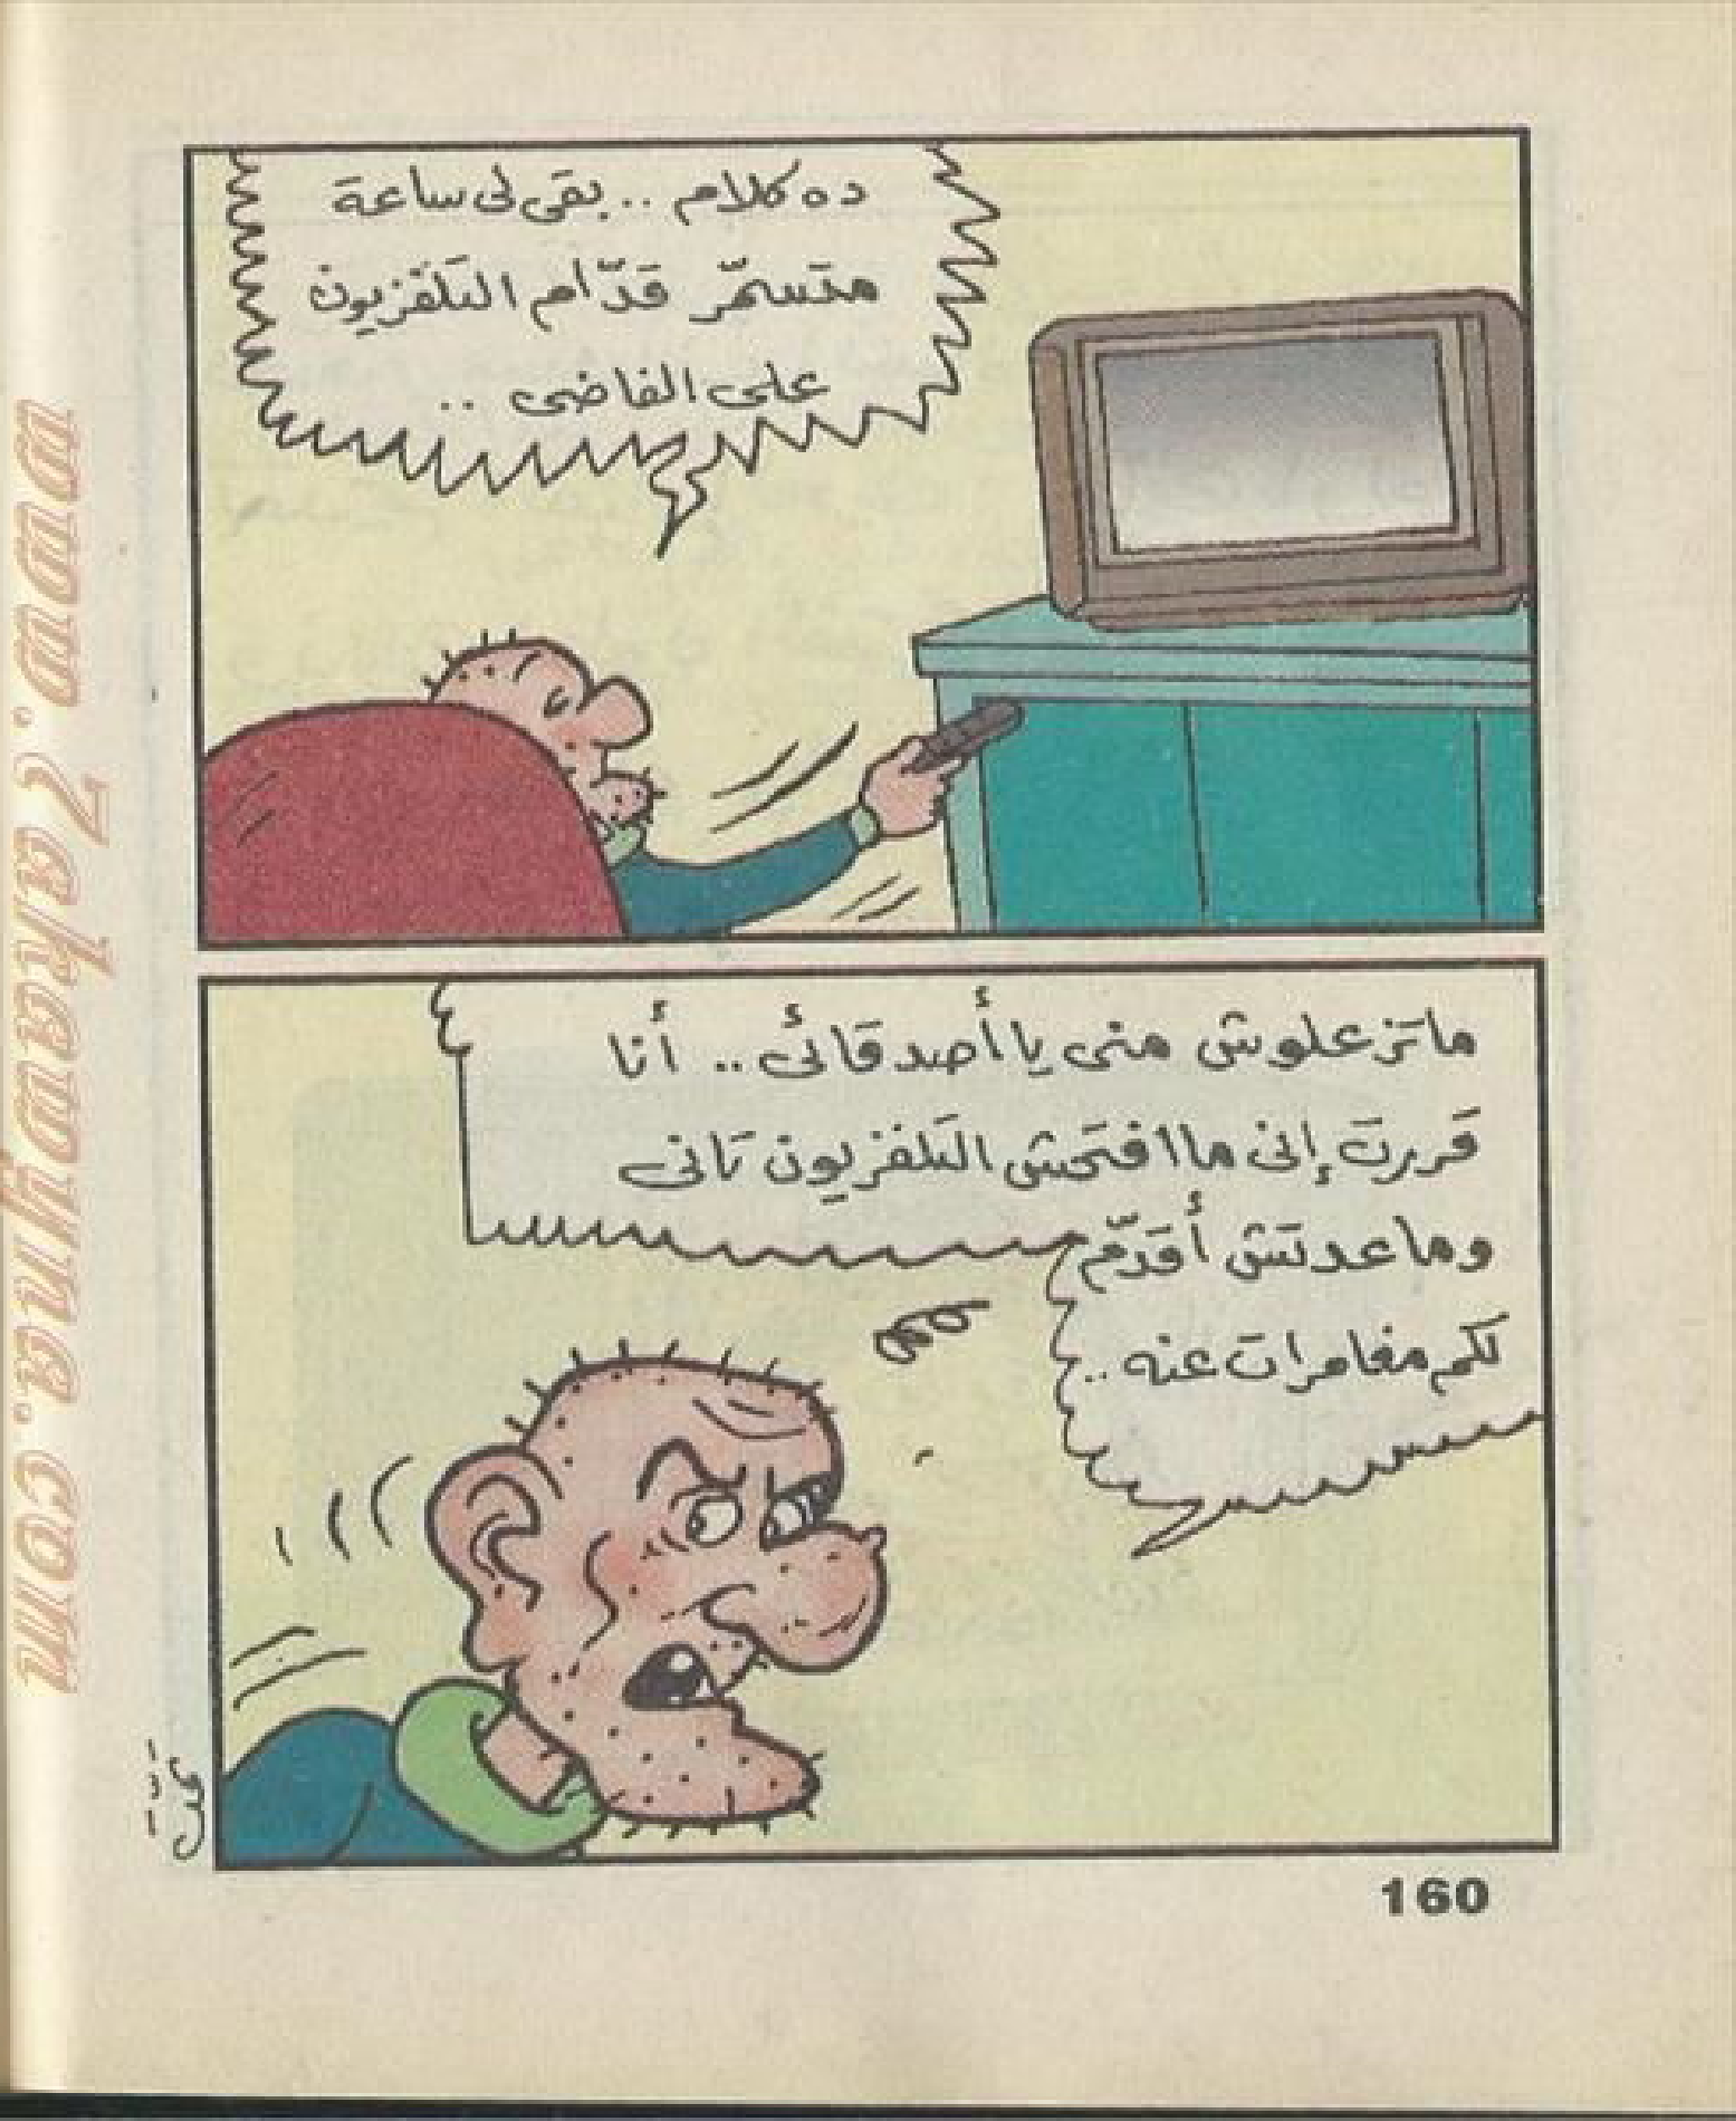 ده كلام .. بقى لى ساعة
متسمّر قدّام التلفزيون
على الفاضى ..
ماتزعلوش منى يا أصدقائى .. أنا
قررت إنى ما افتحش التلفزيون تانى
وما عدتش أقدّم
لكم مغامرات عنه ..
160
www.7akawyna.com